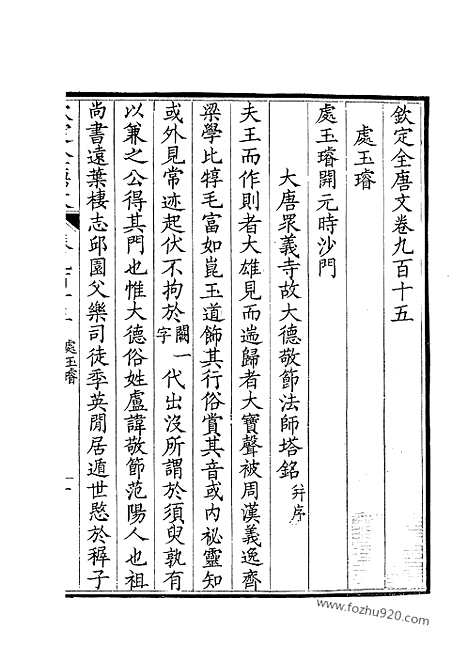 欽定全唐文卷九百十五
處玉璿
處玉璿開元時沙門
大唐眾義寺故大德敬節法師塔銘并序
夫王而作則者大雄見而遄歸者大寶聲被周漢義逸齊
梁學比犉毛富如崑玉道飾其行俗賞其音或內祕靈知
或外見常迹起伏不拘於闕一字代出沒所謂於須臾孰有
以兼之公得其門也惟大德俗姓盧諱敬節范陽人也祖
尚書遠葉棲志邱園父樂司徒季英閒居遁世愍於稺子
處玉璿
一
www.fozhu920.com